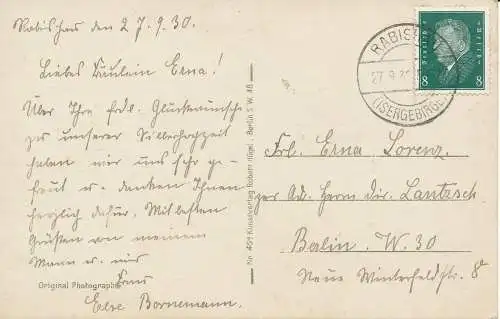 Rabishau den 27.9.30.
Liebes Fräulein Erna!
Über Ihre frdl. Glückwünsche
zu unserer Silberhochzeit
haben wir uns sehr ge-
freut u. danken Ihnen
herzlich dafür. Mit besten
Grüßen von meinem
Mann u. mir
Else Bornemann.
Original Photographie
No 491 Kunstverlag Robert Hügel, Berlin S.W. 48
Deutsches Reich
8 8
RABISHAU
27.9.30
(ISERGEBIRGE)
Frl. Erna Lorenz.
per Ad. Herrn Dir. Lantzsch
Berlin. W. 30
Neue Winterfeldtstr. 8